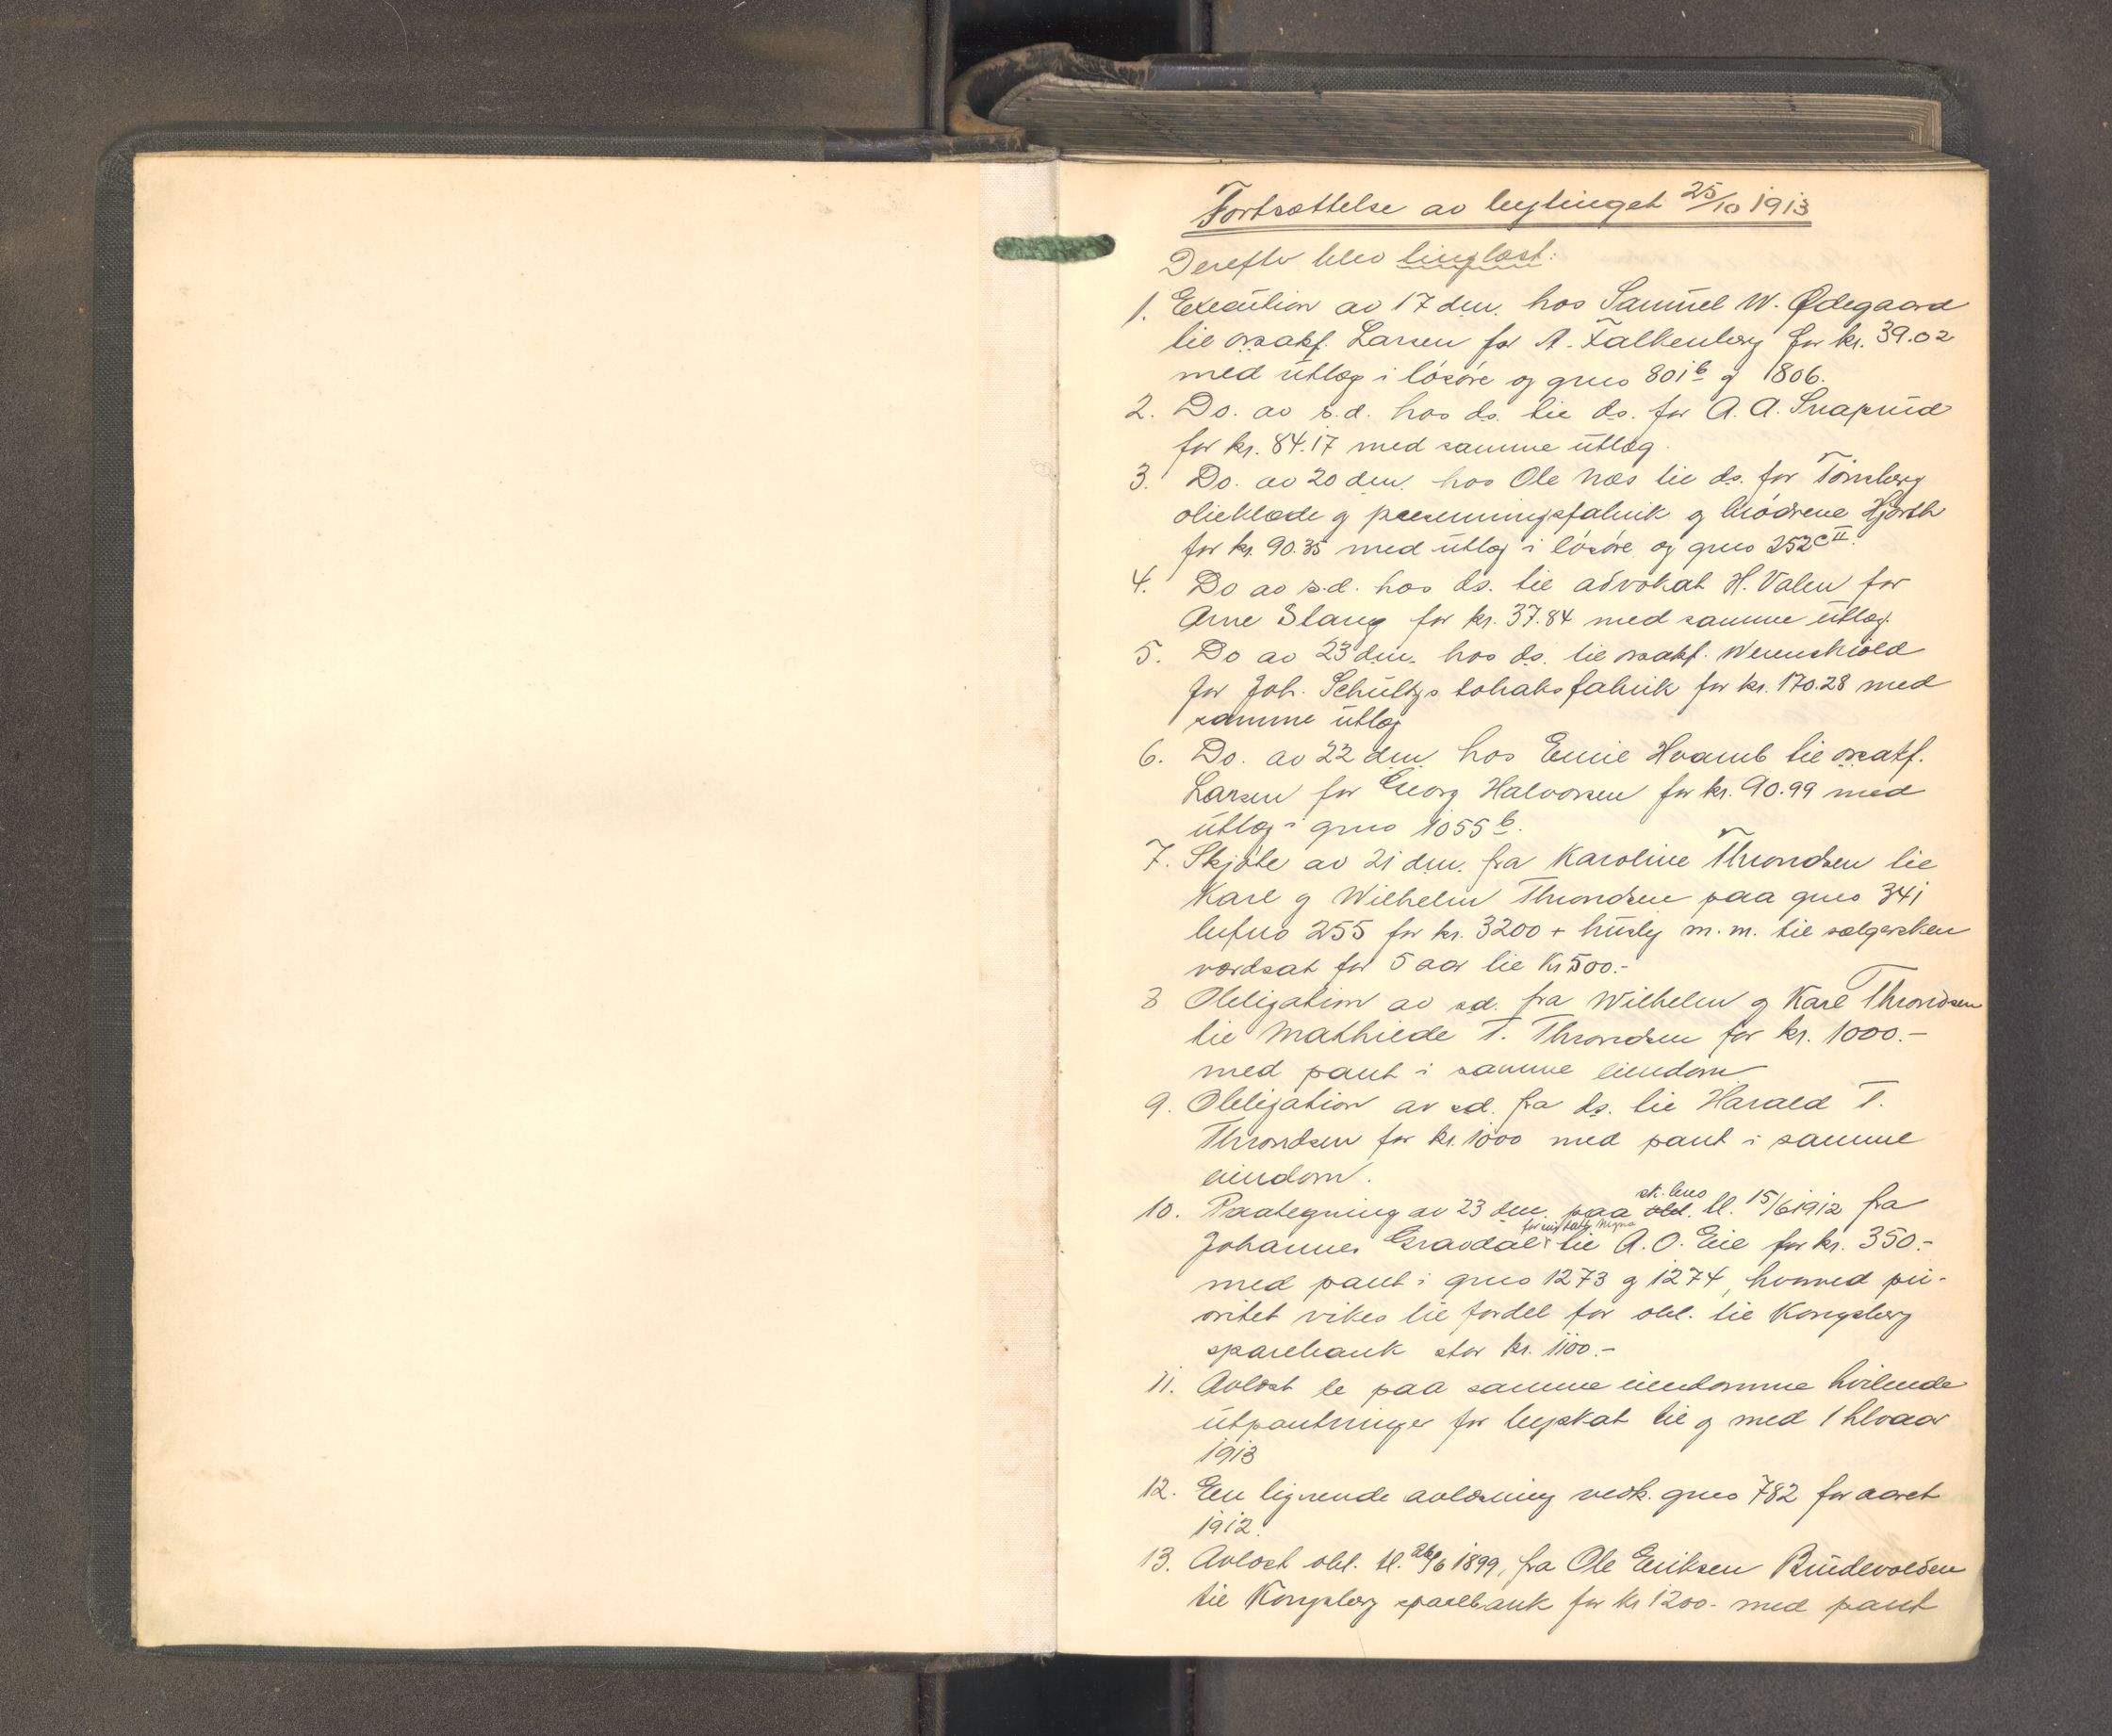 Fortsættelse av bytinget 25/10 1913
Derefter blev tinglæst:
1. Execution av 17 dm. hos Samuel W. Ødegaard
til orsakf. Larsen for A. Falkenberg for kr. 39.02
med utlæg i løsøre og grno 801b og 1806.
2. Do. av s.d. hos ds. til ds. for A. A. Snaprud
for kr. 84.17 med samme utlæg.
3. Do. av 20 dm. hos Ole Næs til ds. for Tønsberg
olieklæde og presenningsfabrik og brødrene Hjorth
for kr. 90.35 med utlæg i løsøre og grno 252c II.
4. Do av s.d. hos ds. til advokat H. Valen for
Arne Slang for kr. 37.84 med samme utlæg.
5. Do av 23 dm. hos ds. til orsakf. Werenskiold
for Joh. Schultz's tobaksfabrik for kr. 170.28 med
samme utlæg
6. Do. av 22 dm. hos Emil Hvamb til orsakf.
Larsen for Georg Halvorsen for kr. 90.99 med
utlæg i grno 1055b.
7. Skjøte av 21 dm. fra Karoline Throndsen til
Karl og Wilhelm Throndsen paa grno 341
bufno 255 for kr. 3200 + husly m.m. til sælgersken
værdsat for 5 aar til kr 500.-
8 Obligation av s.d. fra Wilhelm og Karl Throndsen
til Mathilde T. Throndsen for kr. 1000.-
med pant i samme eiendom
9. Obligation av s.d. fra ds. til Harald T.
Throndsen for kr. 1000 med pant i samme
eiendom.
10. Paategning av 23 dm. paa sk. brev tl. 15/6 1912 fra
Johannes Gravdal til A. O. Eie for kr. 350.-
med pant i grno 1273 og 1274, hvorved pri-
oritet vikes til fordel for obl. til Kongsberg
sparebank stor kr. 1100.-
11. Avlæst de paa samme eiendomme hvilende
utpantninger for byskat til og med 1 hlvaar
1913
12. En lignende avlæsning vedk. grno 782 for aaret
1912.
13. Avlæst obl. tl. 26/6 1899, fra Ole Eriksen Rudevolden
til Kongsberg sparebank for kr 1200.- med pant